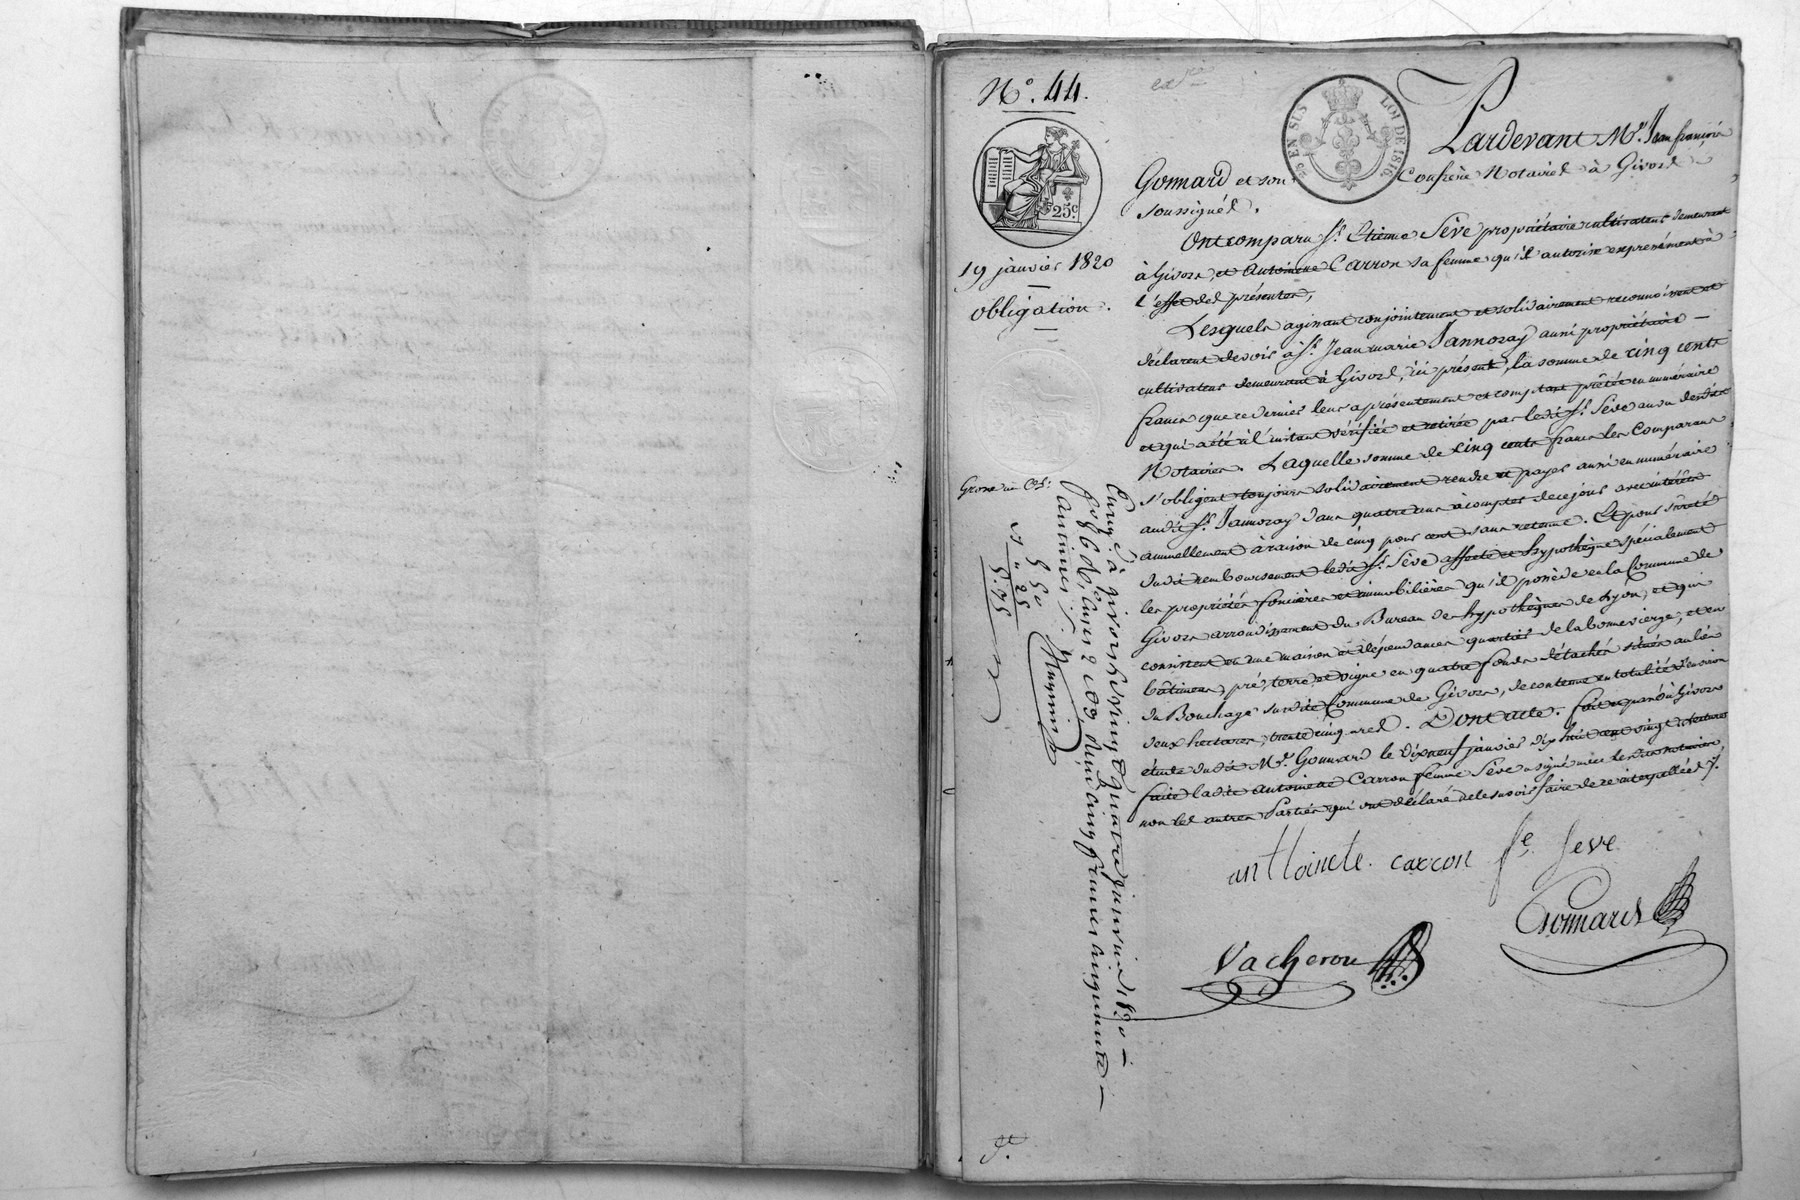 N.° 44.
25 EN SUS
LOI DE 1816.
25c
19 janvier 1820
obligation.
Pardevant M.e Jean françois
Gonnard et son Confrère Notaires à Givors
soussignés.
Ont comparu s.r Etienne Sève propriétaire cultivateur demeurant
à Givors, et Antoinette Carron sa femme qu'il autorise expressément à
l'effet des présentes,
Lesquels agissant conjointement et solidairement reconnoissent et
déclarent devoir à s.r Jean marie Jannoray aussi propriétaire
cultivateur demeurant à Givors, ici présent, la somme de cinq cents
francs que ce dernier leur a présentement et comptant prêtée en numéraire
et qui a été à l'instant vérifiée et retirée par ledit s.r Sève au vu desdits
Notaires. Laquelle somme de cinq cents francs les Comparans
s'obligent toujours solidairement rendre et payer aussi en numéraire
audit s.r Jannoray dans quatre ans à compter de ce jour avec intérêts
annuellement à raison de cinq pour cent sans retenue. Et pour sûreté
dudit remboursement ledit s.r Sève affecte et hypothèque spécialement
les propriétés foncières et immobilières qu'il possède en la Commune de
Givors arrondissement du Bureau des hypothèques de Lyon, et qui
consistent en une maison et dépendances quartier de la bonne vierge, et en
bâtimens, pré, terre et vigne en quatre fonds détachés situés au lieu
du Bouchage susdite Commune de Givors, de contenue en totalité d'environ
deux hectares, trente cinq ares. Dont acte. fait et passé à Givors
étude dudit M.e Gonnard le dix neuf janvier dix huit cent vingt. Lecture
faite ladite Antoinette Carron femme Sève a signé avec lesdits notaires
non les autres Parties qui ont déclaré ne le savoir faire de ce interpellées ./.
antoinete carron f.e seve
Gonnard
Vacheron
Grosse au Cr.
5 50
" 25
5.75
Enreg.é à givors le vingt quatre janvier 1820
f.o 66 v.o cases 2 et 3 reçu cinq francs cinquante
centimes